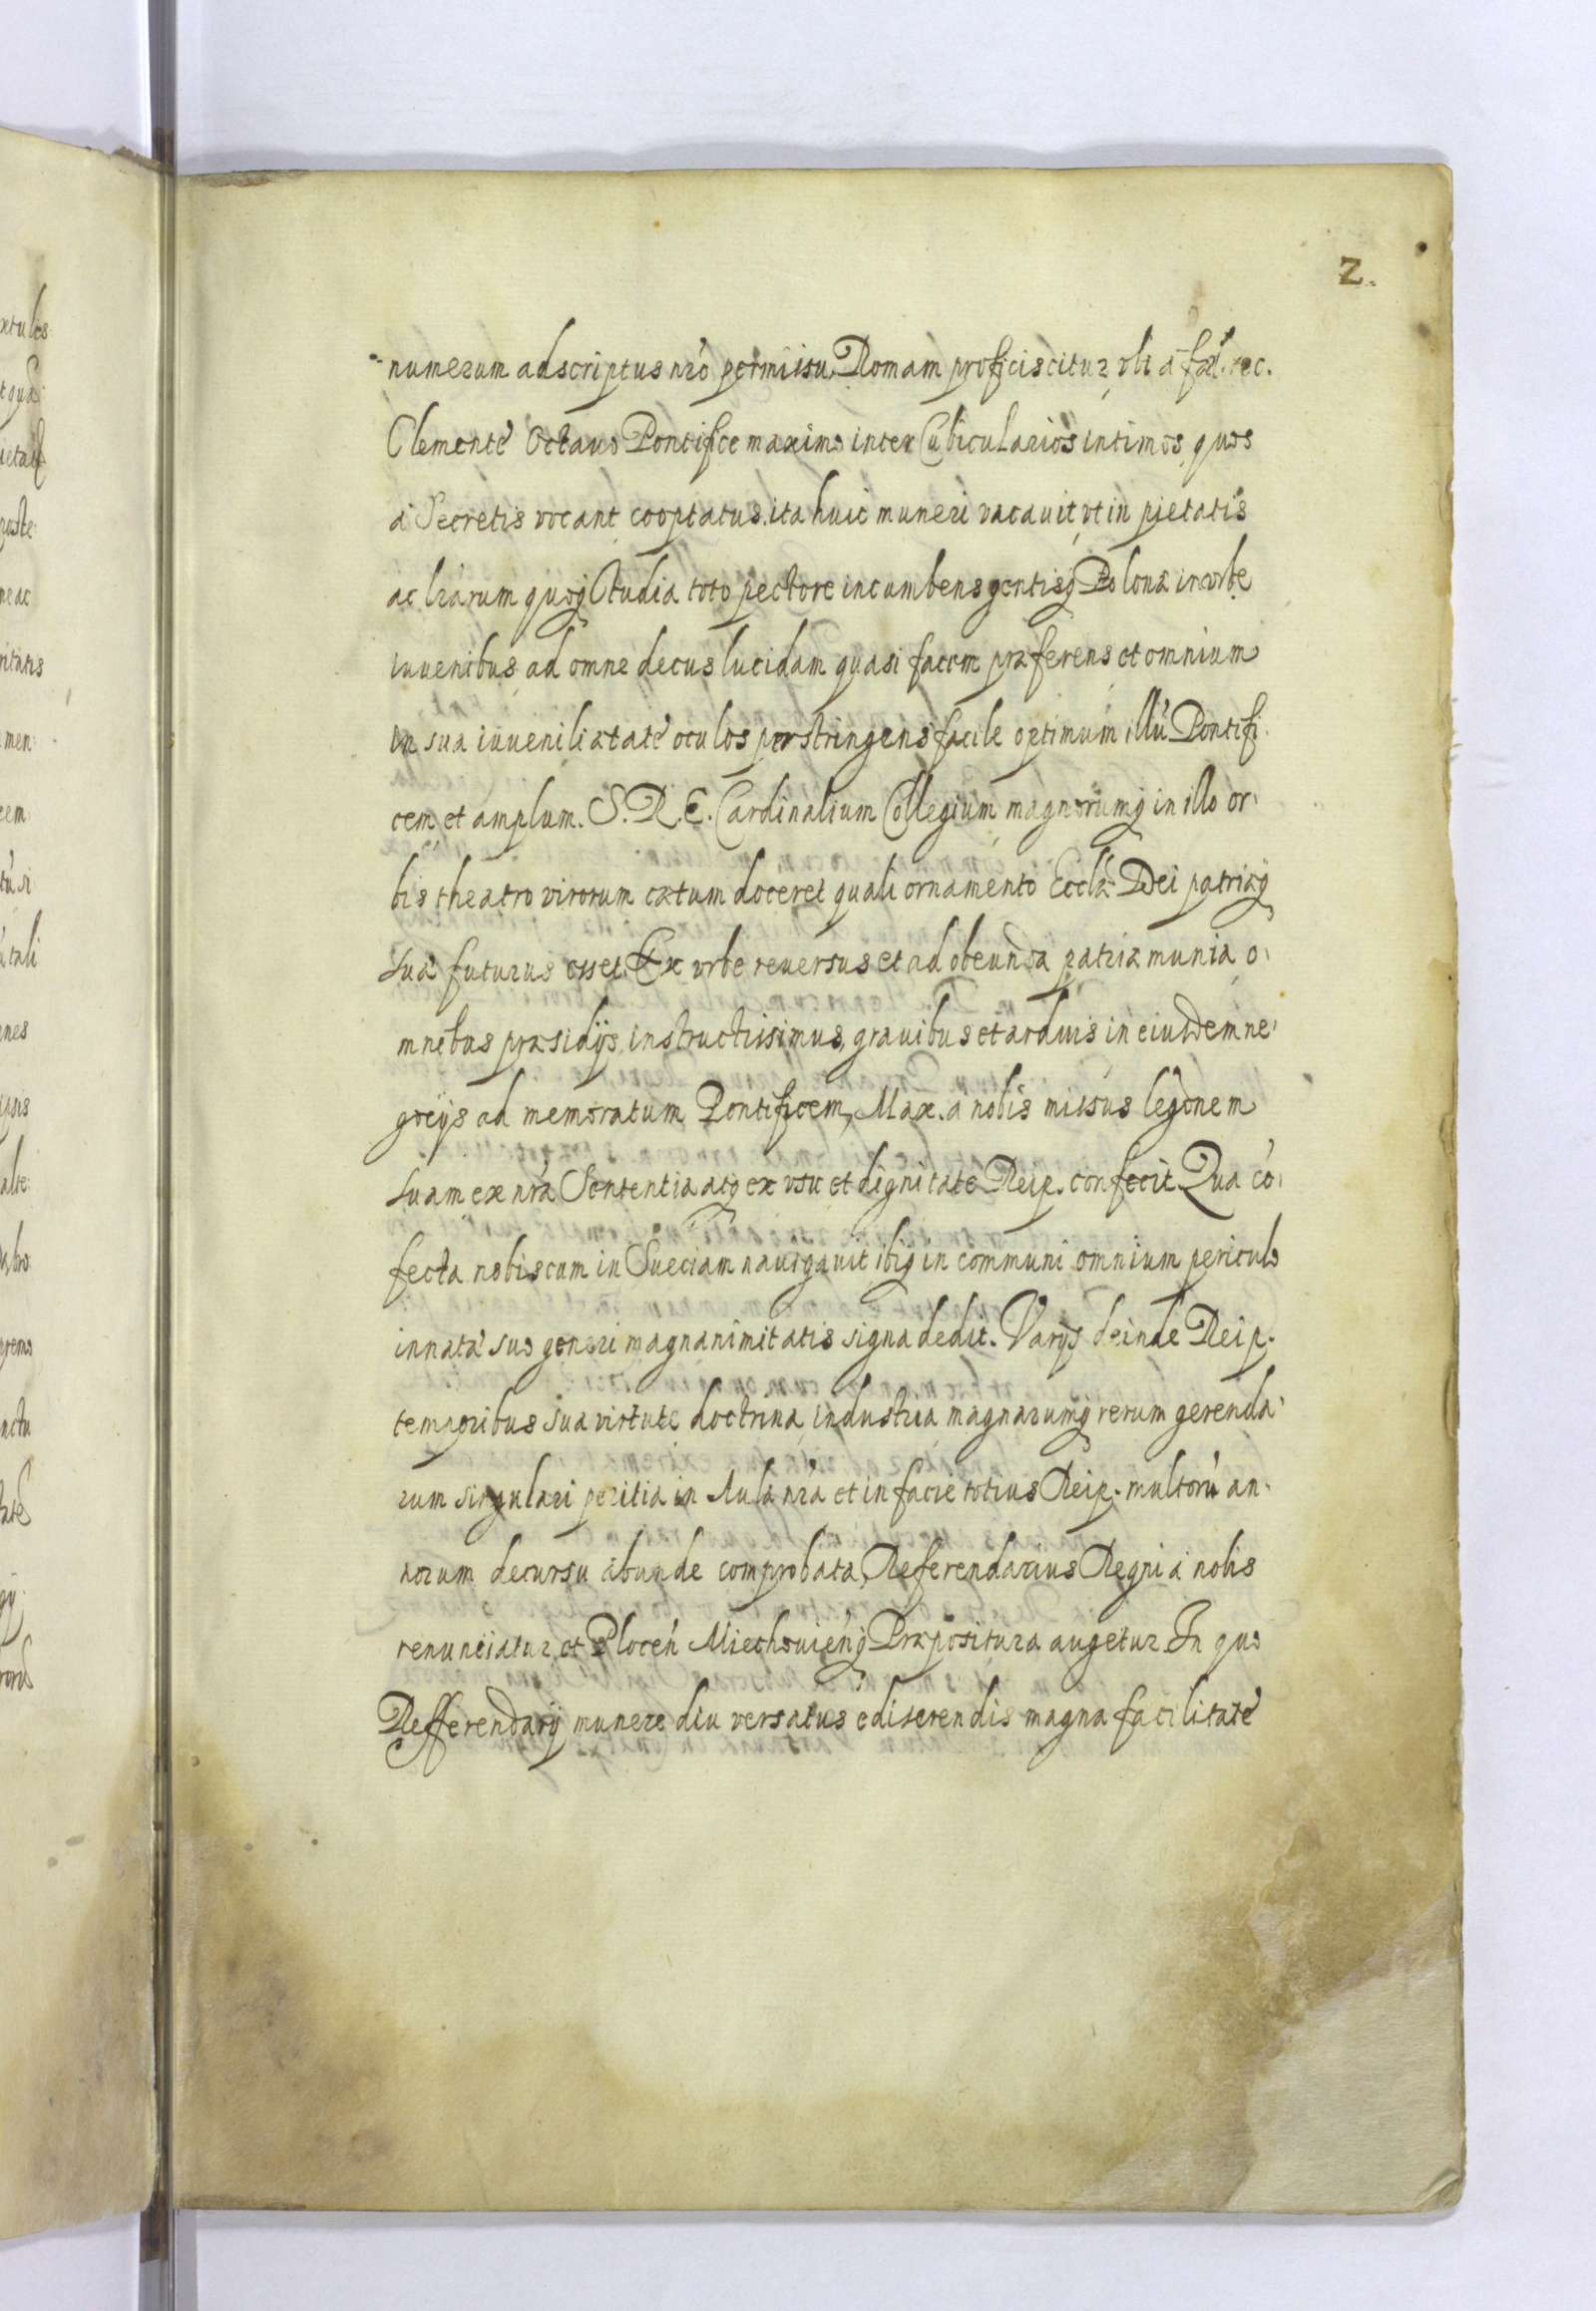 2.
numerum adscriptus nr̃o permissu, Romam proficiscitur, vbi à fæl. rec.
Clemente Octauo Pontifice maximo inter Cubicularios intimos, quos
à Secretis vocant, cooptatus. ita huic muneri vacauit, vt in pietatis
ac lr̃arum quoq̃ Studia toto pectore incumbens gentisq̃ Polonæ in vrbe
iuuenibus, ad omne decus lucidam quasi facem præferens et omnium
in sua iuuenili ætate oculos perstringens facile optimum illũ Pontifi-
cem, et amplum. S. R. E. Cardinalium Collegium, magnorumq̃ in illo or-
bis theatro virorum cætum doceret quali ornamento Eccl̃æ Dei patriæq̃
suæ futurus esset. Ex vrbe reuersus et ad obeunda patriæ munia o-
mnibus præsidijs instructissimus, grauibus et arduis in eiusdem ne-
gocijs ad memoratum Pontificem, Max. à nobis missus leg̃onem
suam ex nr̃a Sententia atq̃ ex vsu et dignitate Reip. confecit. Qua cõ-
fecta nobiscum in Sueciam nauigauit ibiq̃ in communi omnium periculo
innatæ suo generi magnanimitatis signa dedit. Varijs deinde Reip.
temporibus sua virtute doctrina, industria magnarumq̃ rerum gerenda-
rum singulari peritia in Aula nr̃a et in facie totius Reip. multorũ an-
norum decursu abunde comprobata, Referendarius Regni à nobis
renunciatur, et Plocen̄ Miechouien̄q̃ Præpositura augetur. In quo
Refferendarij munere diu versatus edisserendis magna facilitate